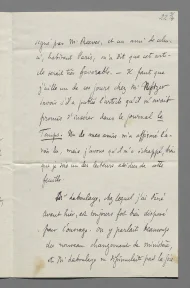 signé par Mr Reeves, et un ami de celui-
ci, habitant Paris, m'a dit que cet arti-
cle serait très favorable. — Il faut que
j'aille un de ces jours chez Mr
savoir s'il a publié l'article qu'il m'avait
promis d'insérer dans le journal le
Temps. Un de mes amis m'a affirmé l'a-
voir lu, mais j'avais qu'il m'a échappé, bien
que je sois un des lecteurs assidus de cette
feuille.
Mr chez lequel j'ai dîné
avant hier, est toujours fort bien disposé
pour l'ouvrage. On y parlait beaucoup
des nouveaux changements de ministère,
et Mr ne pas